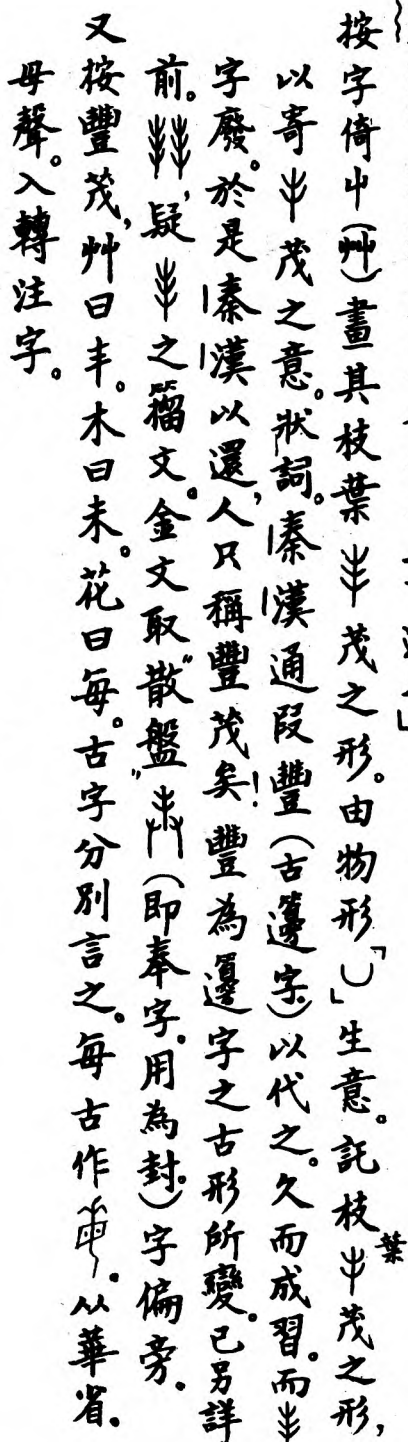 按字倚屮(艸)畫其枝葉丰茂之形。由物形「◡」生意。託枝葉丰茂之形,
以寄丰茂之意。狀詞。秦漢通叚豐(古籩字)以代之。久而成習。而丰
字廢。於是秦漢以還,人只稱豐茂矣!豐為籩字之古形所變。已另詳
前。疑丰之籀文。金文取"散盤"(即奉字。用為封。)字偏旁。
又按豐茂,艸曰丰。木曰未。花曰每。古字分別言之。每古作。从華省。
母聲。入轉注字。